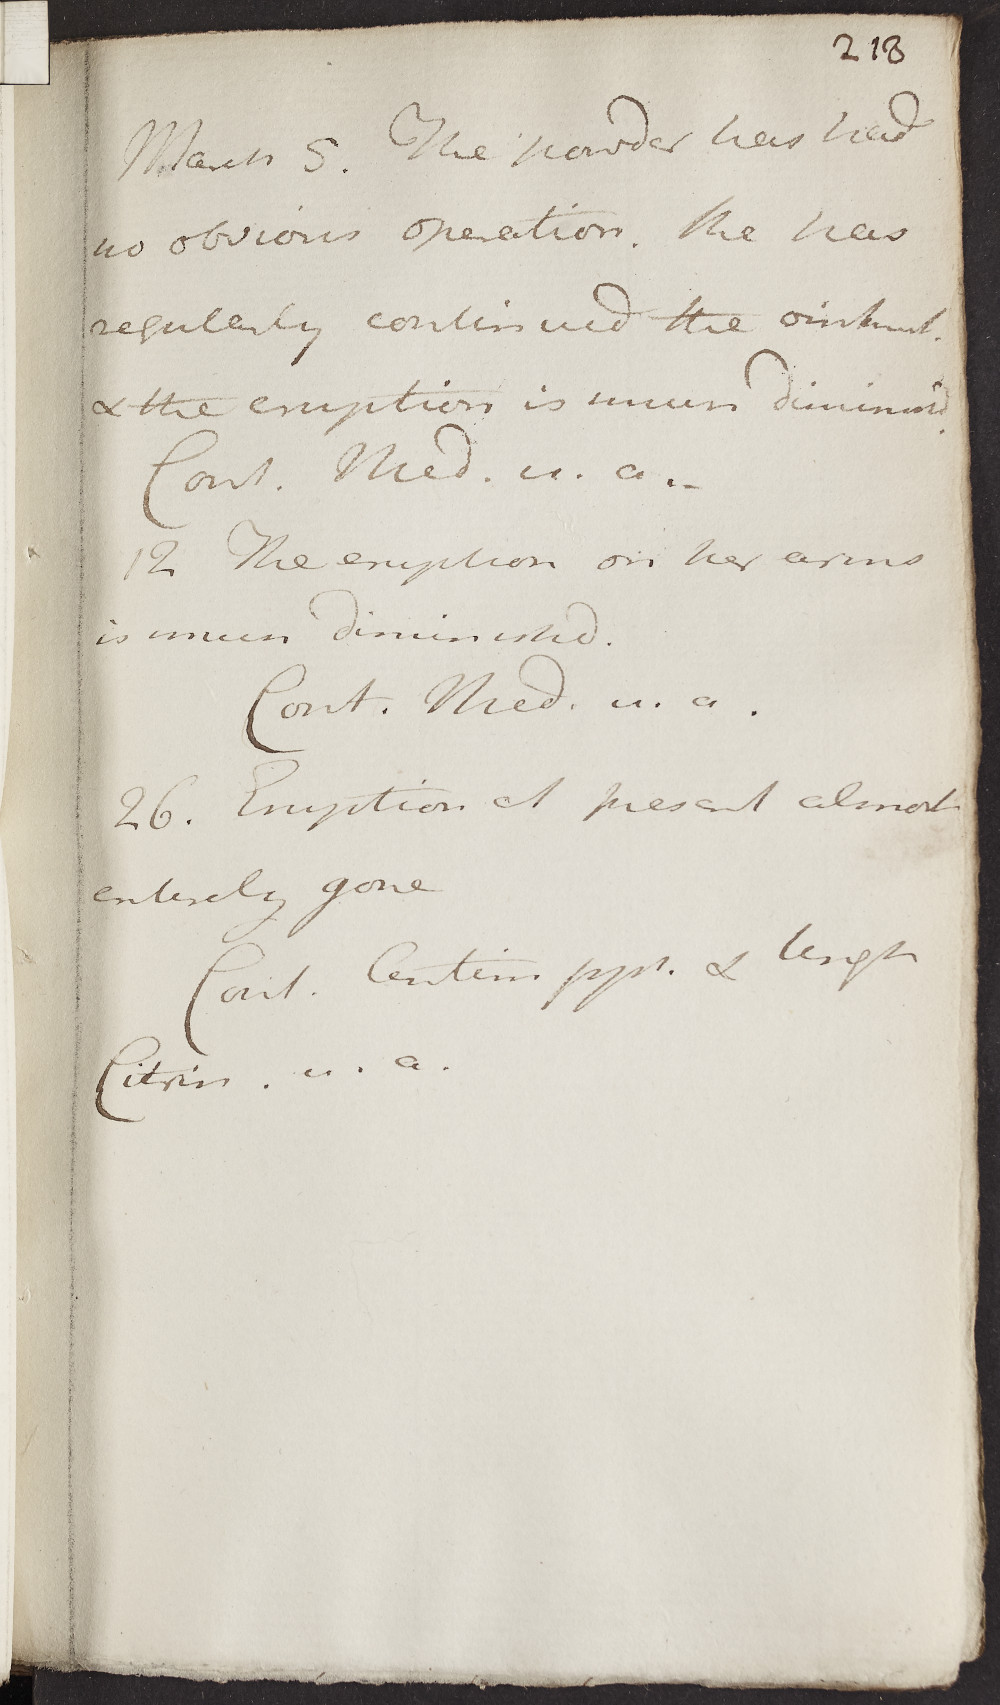 213
March 5. The powder has had
no obvious operation. She has
regularly continued the ointment.
& the eruption is much diminish'd.
Cont. Med. u. a.
12 The eruption on her arms
is much diminished.
Cont. Med. u. a.
26. Eruption at present almost
entirely gone
Cont. ppt. &
Citrin. u. a.